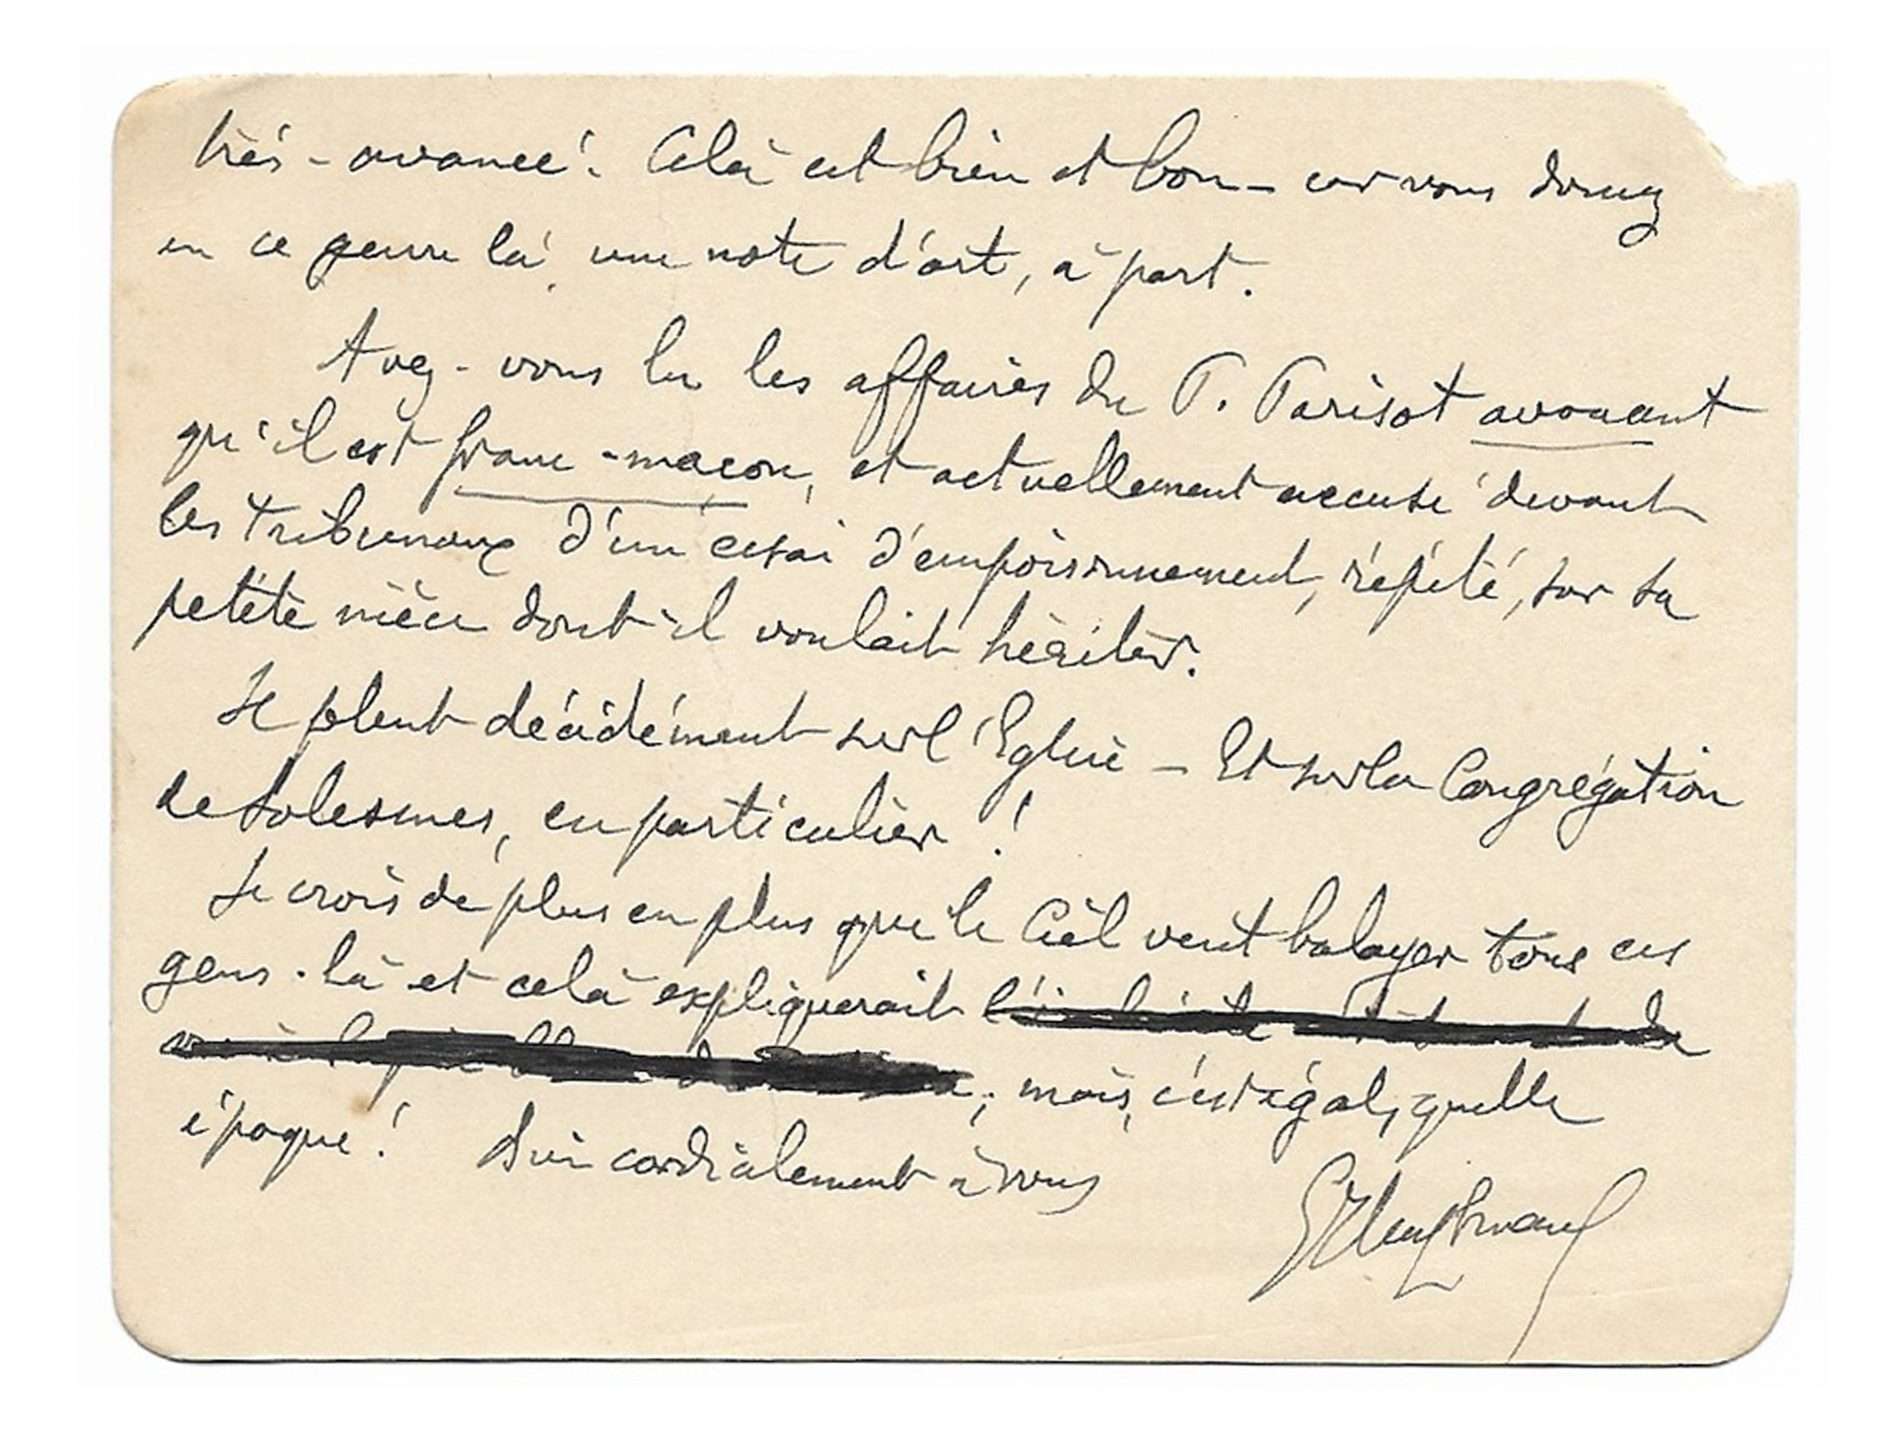 très-avancé. Celà est bien et bon – car vous donnez
en ce genre là, une note d'art, à part.
Avez-vous lu les affaires du P. Parisot avouant
qu'il est franc-maçon, et actuellement accusé devant
les tribunaux d'un essai d'empoisonnement, répété, sur sa
petite nièce dont il voulait hériter.
Il pleut décidément sur l'Eglise – Et sur la Congrégation
de Solesmes, en particulier !
Je crois de plus en plus que le Ciel veut balayer tous ces
gens-là et celà expliquerait
; mais, c'est égal, quelle
époque ! Bien cordialement à vous
G Huysmans